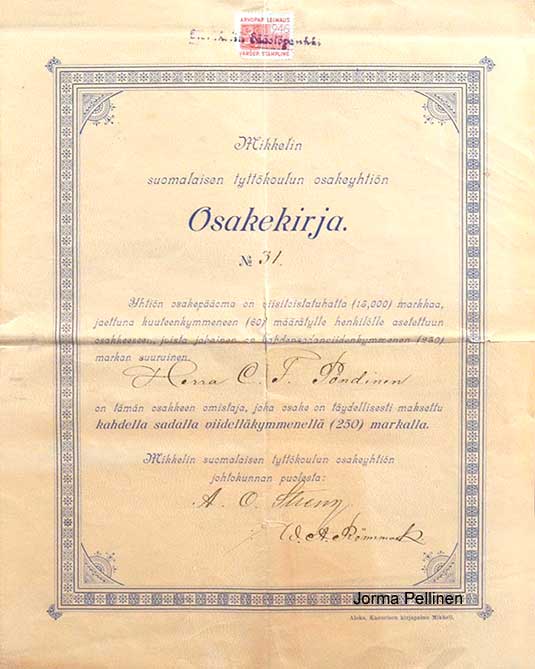 ARVOPAP. LEIMAUS
1946
VÄRDEP. STÄMPLING
Säästöpankki
Mikkelin
suomalaisen tyttökoulun osakeyhtiön
Osakekirja.
№ 31.
Yhtiön osakepääoma on viisitoistatuhatta (15,000) markkaa,
jaettuna kuuteenkymmeneen (60) määrätylle henkilölle asetettuun
osakkeeseen, joista jokainen on kahdensadanviidenkymmenen (250)
markan suuruinen.
Herra C. F.
on tämän osakkeen omistaja, joka osake on täydellisesti maksettu
kahdella sadalla viidelläkymmenellä (250) markalla.
Mikkelin suomalaisen tyttökoulun osakeyhtiön
johtokunnan puolesta:
A. O.
Jorma Pellinen
Aleks. Kanervisen kirjapaino Mikkeli.